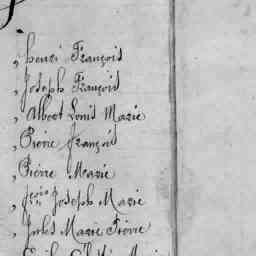 , henri François
, Joseph François
, Albert Louis Marie
, Pierre françois
, Pierre Marie
, Joseph Marie
, Jules Marie Pierre